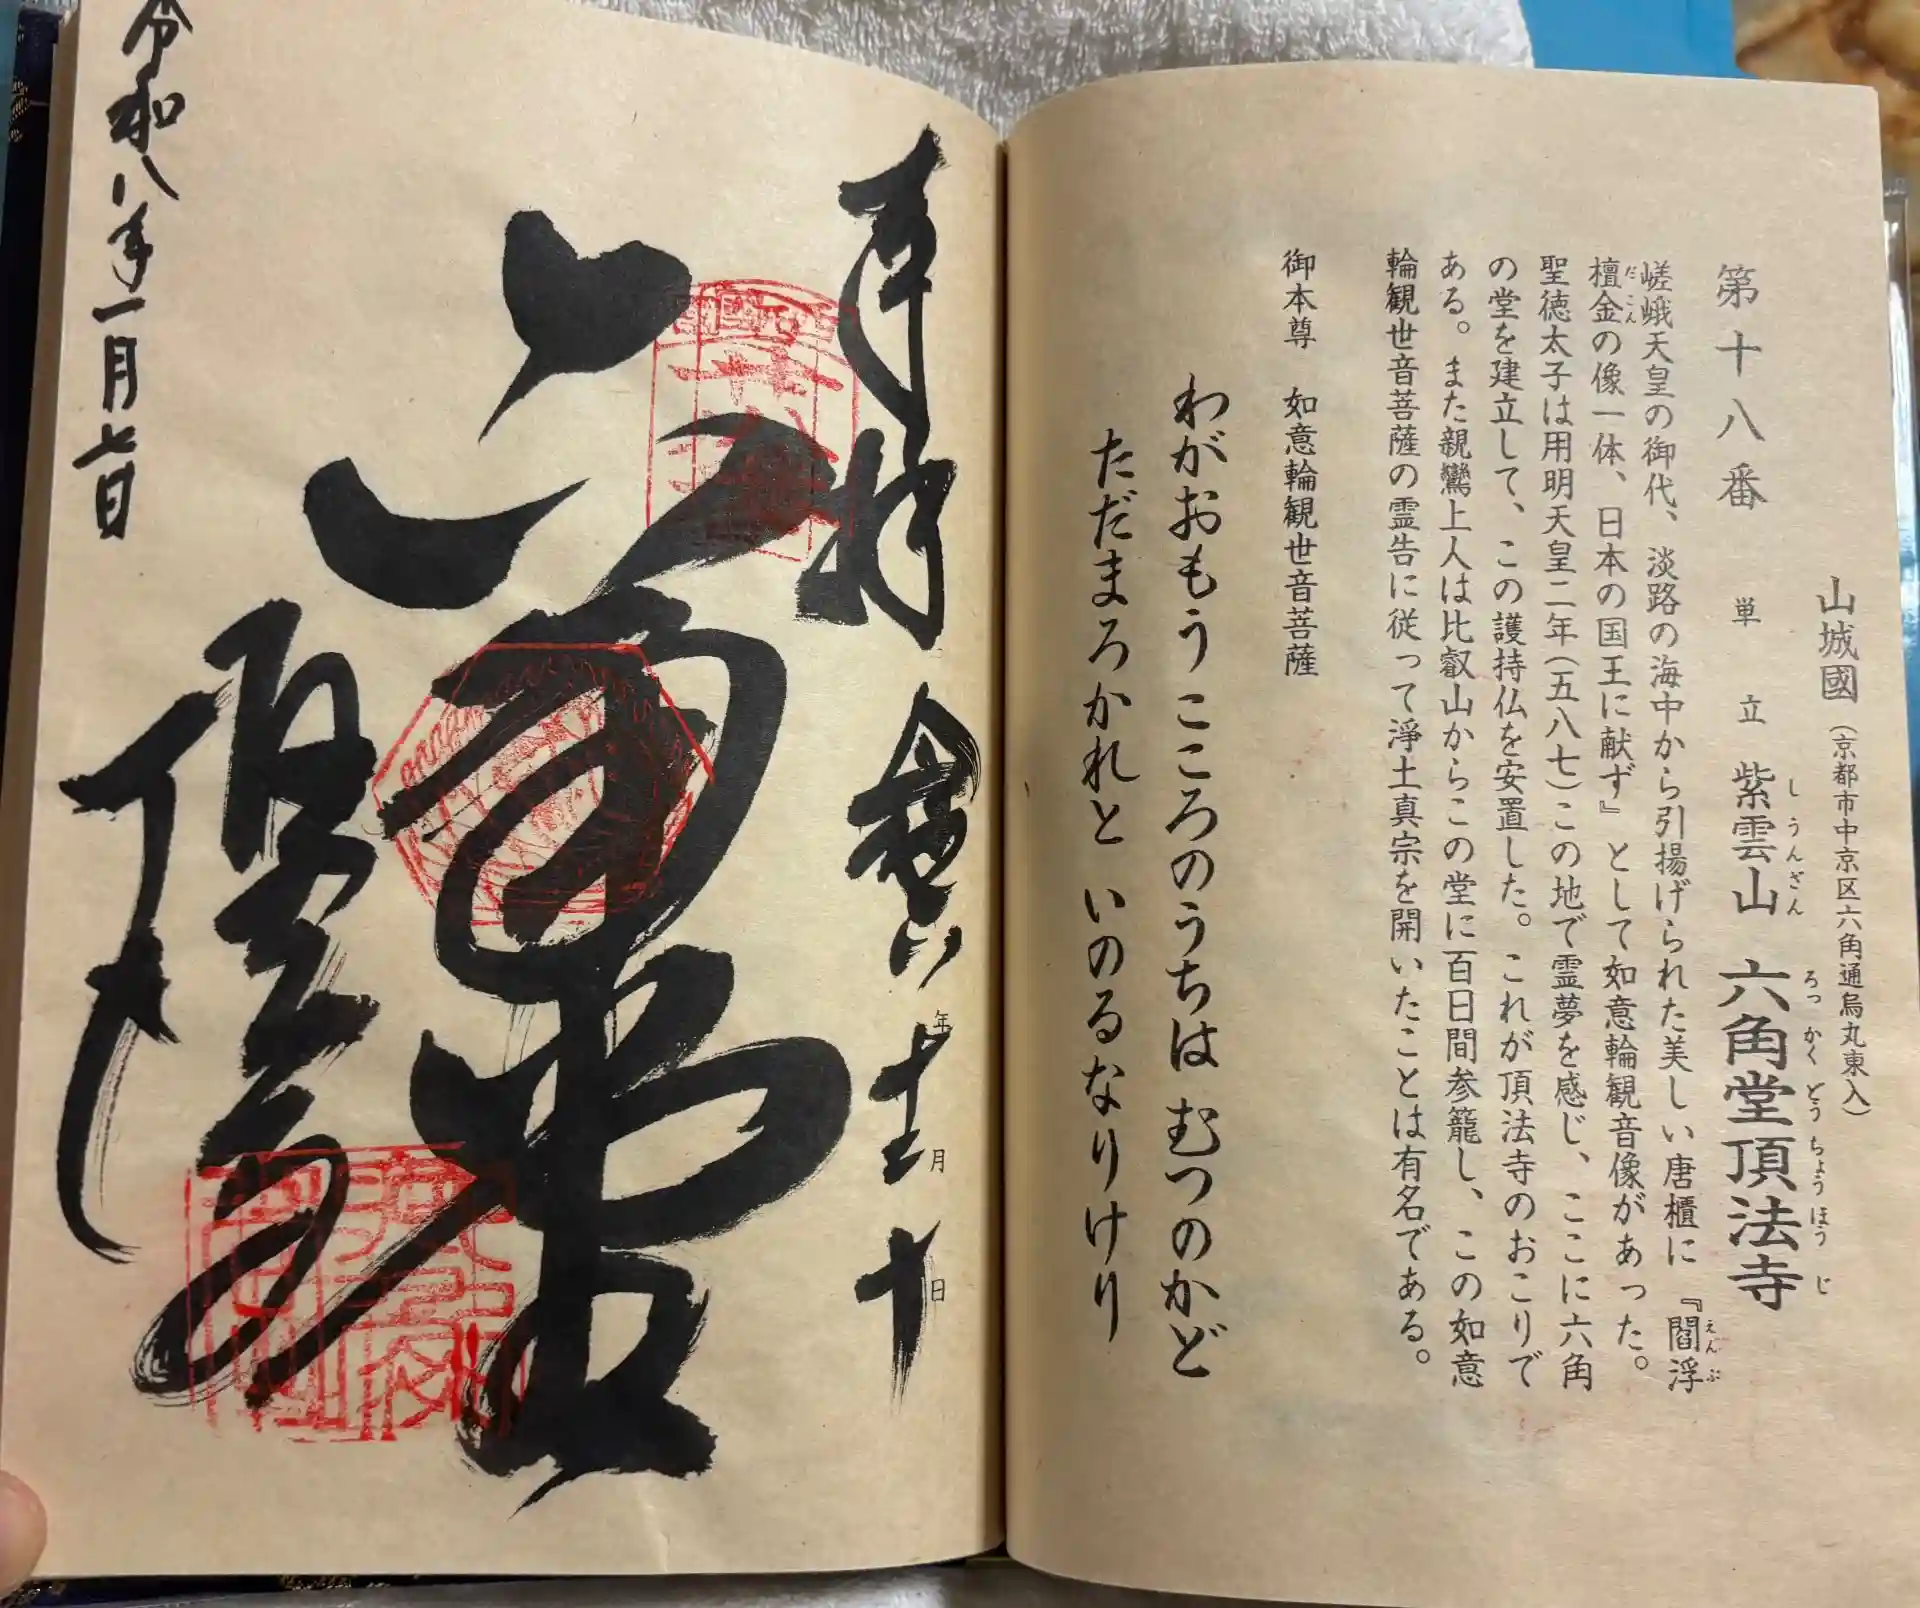 山城國(京都市中京区六角通烏丸東入)
第十八番 単立 紫雲山 六角堂頂法寺
しうんざん ろっかくどうちょうほうじ
嵯峨天皇の御代、淡路の海中から引揚げられた美しい唐櫃に『閻浮
えんぶ
檀金の像一体、日本の国王に献ず』として如意輪観音像があった。
だこん
聖徳太子は用明天皇二年(五八七)この地で霊夢を感じ、ここに六角
の堂を建立して、この護持仏を安置した。これが頂法寺のおこりで
ある。また親鸞上人は比叡山からこの堂に百日間参籠し、この如意
輪観世音菩薩の霊告に従って浄土真宗を開いたことは有名である。
御本尊 如意輪観世音菩薩
わがおもうこころのうちは むつのかど
ただまろかれと いのるなりけり
奉拝
年 月 日
六角堂
令和八年一月七日